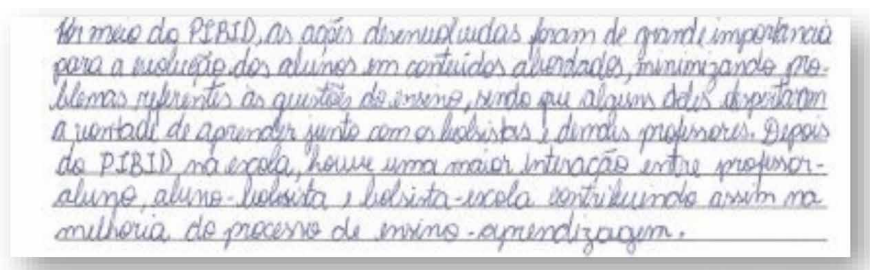 Por meio do PIBID, as ações desenvolvidas foram de grande importancia
para a evolução dos alunos em conteúdos abordados, minimizando pro-
blemas referentes às questões do ensino, sendo que alguns deles despertaram
a vontade de aprender junto com os bolsistas e demais professores. Depois
do PIBID na escola, houve uma maior interação entre professor-
aluno, aluno-bolsista e bolsista-escola contribuindo assim na
melhoria do processo de ensino-aprendizagem.